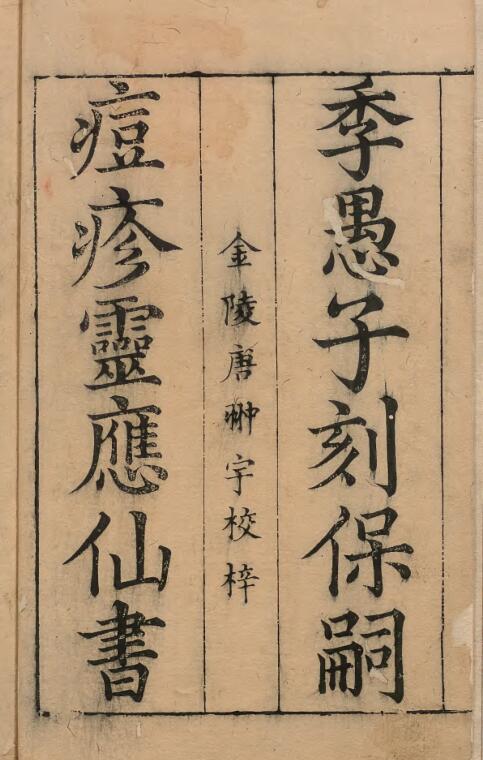 季愚子刻保嗣
金陵唐翀宇校梓
痘疹靈應仙書